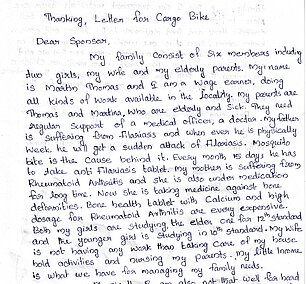 Thanking Letter for Cargo Bike
Dear Sponsor,
My family consist of six members including
two girls, my wife and my elderly parents. My name
is Martin Thomas and I am a wage earner, doing
all kinds of work available in the locality. My parents are
Thomas and Martha, who are elderly and sick. They need
regular support of a medical officer, a doctor. My father
is suffering from Filariasis and when ever he is physically
week, he will get a sudden attack of Filariasis. Mosquito
bite is the cause behind it. Every month 15 days he has
to take anti Filariasis tablet. my mother is suffering from
Rheumatoid Arthritis and she is also under medication
for long time. Now she is taking medicine against bone
deformities. Bone health tablet with Calcium and high
dosage for Rheumatoid Arthritis are every expensive.
Both my girls are studying, the elder one for 12th standard
and the younger girl is studying in 10th standard. My wife
is not having any work than taking care of my house
hold activities and nursing my parents. My little income
is what we have for managing my family needs.
I am also not that well for hard